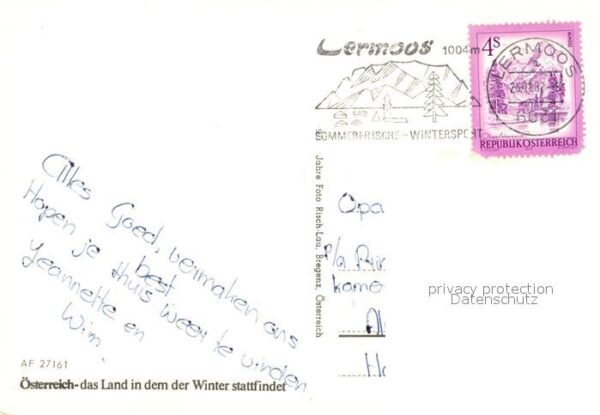 Lermoos 1004m
SOMMERFRISCHE - WINTERSPORT
4S
LERMOOS
REPUBLIK ÖSTERREICH
Alles Goed, vermaken ons
best
Hopen je thuis weer te vinden
Jeannette en
Wim
Jahre Foto Risch-Lau, Bregenz, Österreich
Opa
p/a
kame
privacy protection
Datenschutz
AF 27161
Österreich-das Land in dem der Winter stattfindet